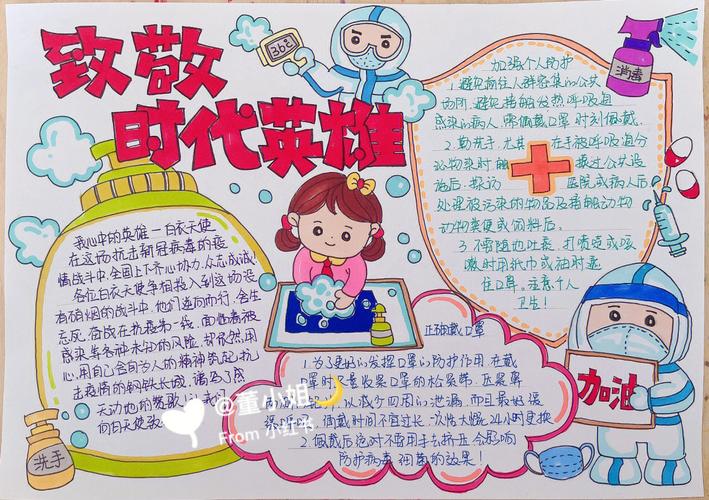 致敬
时代英雄
36℃
消毒
加强个人防护
1.避免前往人群密集的公共
场所.避免接触发热呼吸道
感染的病人,需佩戴口罩时刻佩戴.
2.勤洗手.尤其在手被呼吸道分
泌物染时触摸过公共设
施后.探访医院或病人后
处理被污染的物品及接触动物
动物粪便或饲料后.
3.不要随地吐痰.打喷嚏或咳
嗽时用纸巾或袖时遮
住口鼻.注意个人
卫生!
我心中的英雄一白衣天使
在这场抗击新冠病毒的疫
情战斗中.全国上下齐心协力.众志成城
各位白衣天使争相投入到这场没
有硝烟的战斗中.他们逆向而行.舍生
忘死.奋战在抗疫第一线.面临着被
感染等各种未知的风险.却依然用
用自己舍己为人的精神筑起抗
击疫情的钢铁长城.
天动地的
向白衣天使致
洗手
正确戴口罩
1.为了更好的发挥口罩的防护作用.在戴
口罩时要收紧口罩的
以减少四周的泄漏.而且最好
佩戴时间不宜过长.一次性大概24小时更换
2.佩戴后绝对不要用手去挤压会影响
防护病毒细菌的效果!
加油
@董小姐
From 小红书